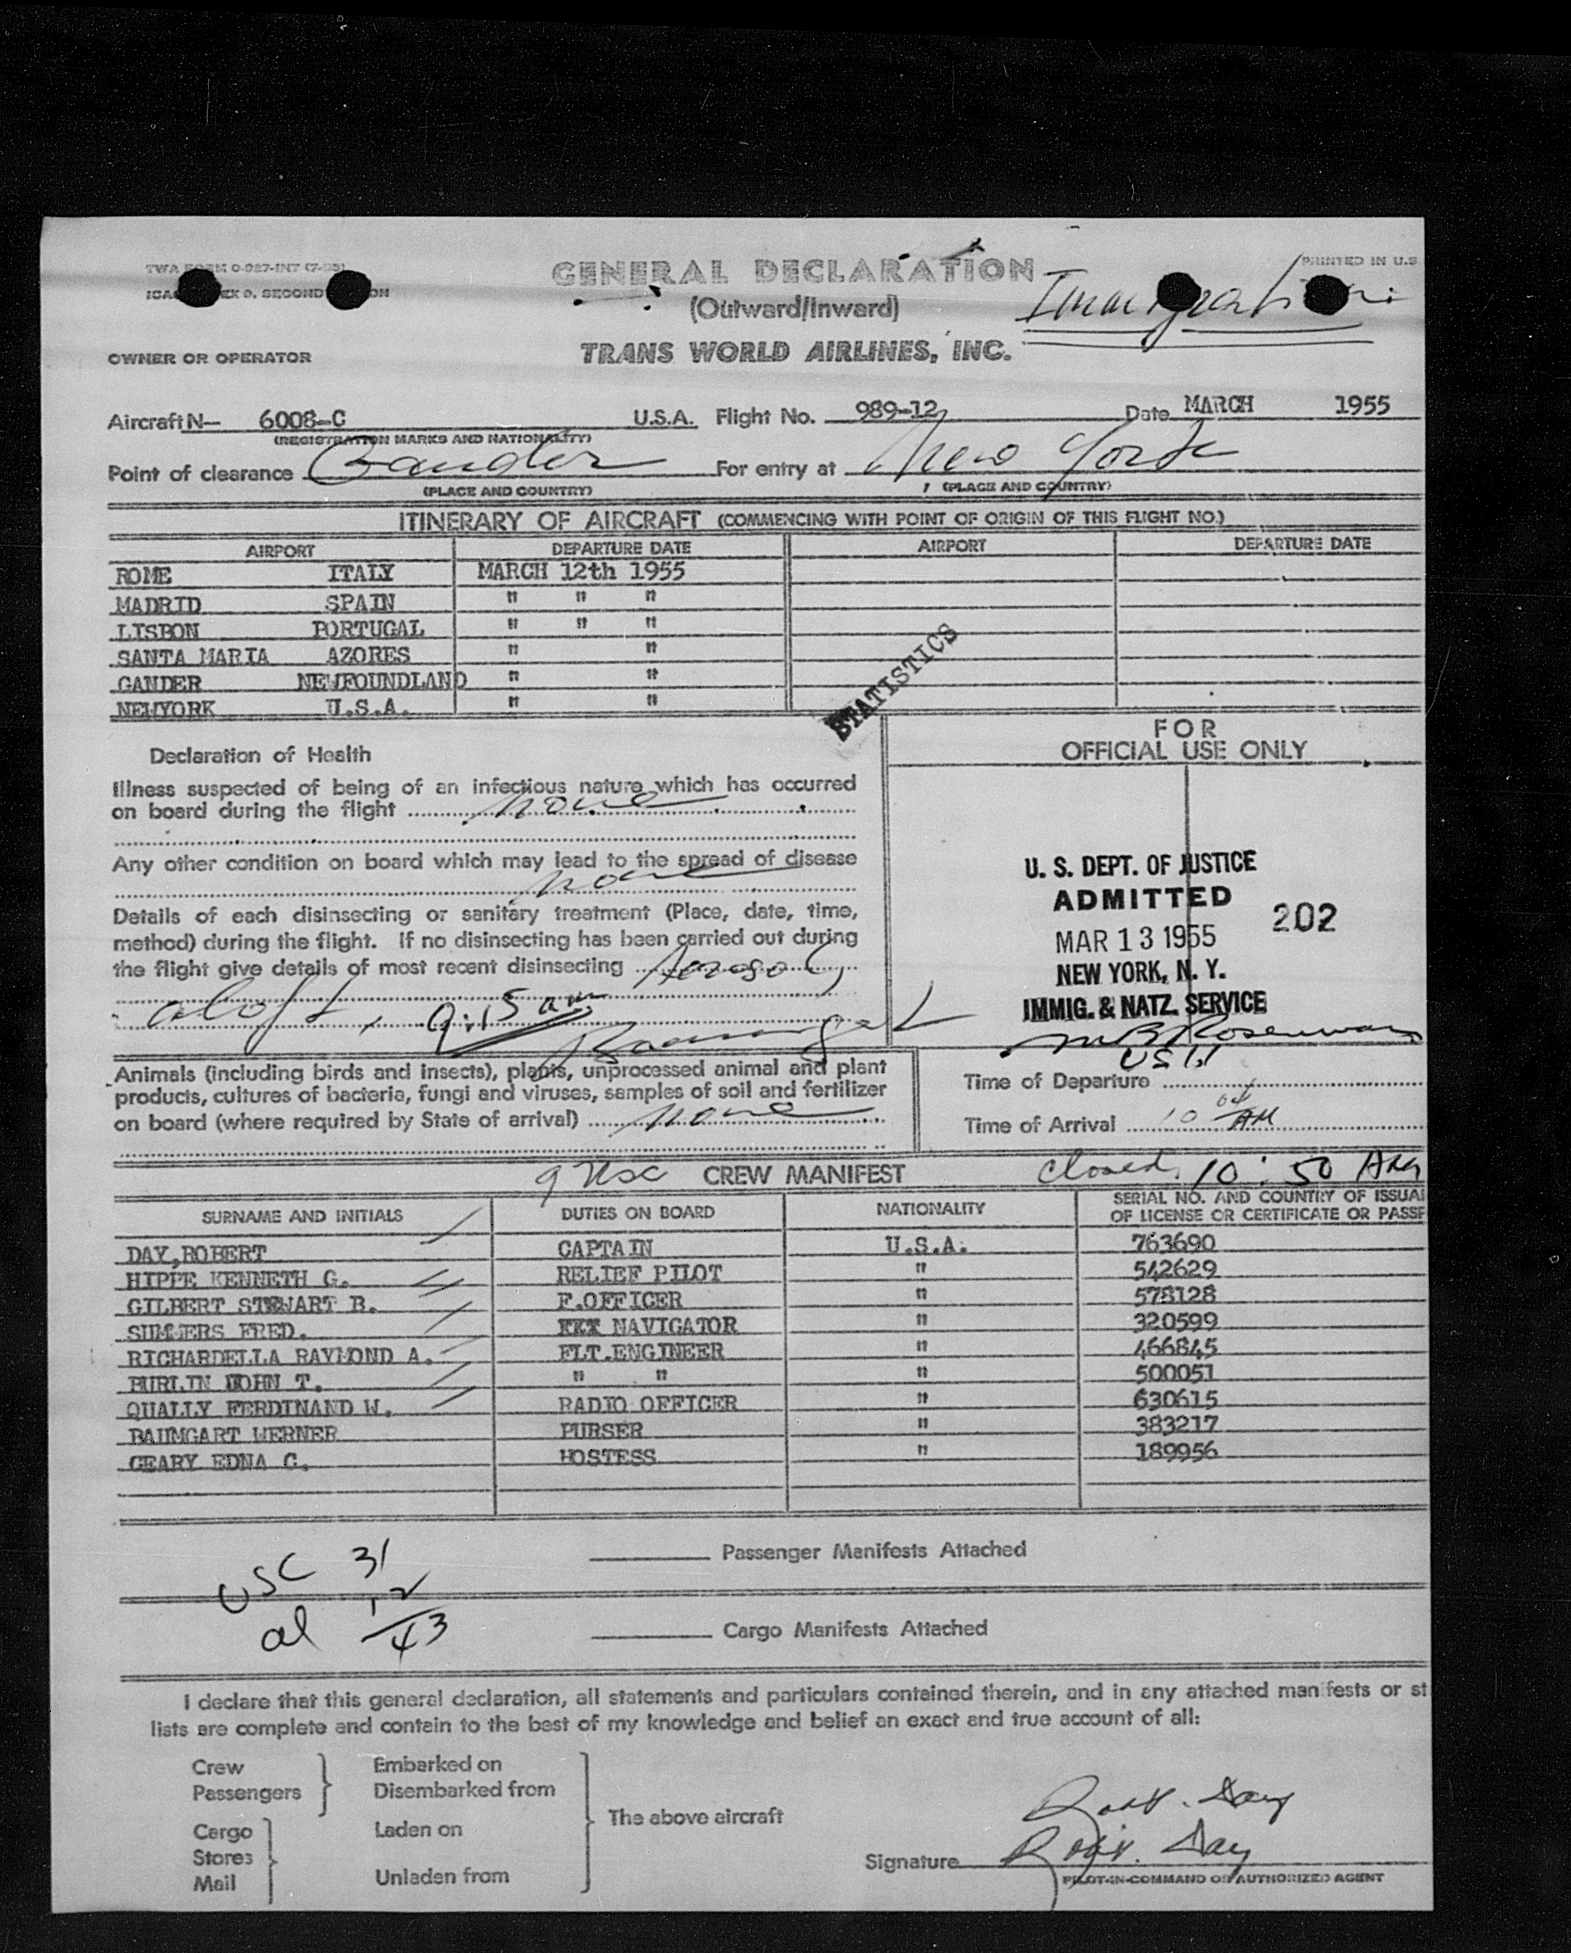 TWA FORM O-987-INT
GENERAL DECLARATION
PRINTED IN U.S
SECOND
(Outward/Inward)
Immigration
OWNER OR OPERATOR
TRANS WORLD AIRLINES, INC.
Aircraft N— 6008-C U.S.A. Flight No. 989-12 Date MARCH 1955
(REGISTRATION MARKS AND NATIONALITY)
Point of clearance Gander For entry at New York
(PLACE AND COUNTRY) (PLACE AND COUNTRY)
ITINERARY OF AIRCRAFT (COMMENCING WITH POINT OF ORIGIN OF THIS FLIGHT NO.)
AIRPORT DEPARTURE DATE AIRPORT DEPARTURE DATE
ROME ITALY MARCH 12th 1955
MADRID SPAIN " " "
LISBON PORTUGAL " " "
SANTA MARIA AZORES " "
GANDER NEWFOUNDLAND " "
NEWYORK U.S.A. " "
STATISTICS
FOR
OFFICIAL USE ONLY
Declaration of Health
Illness suspected of being of an infectious nature which has occurred
on board during the flight none
Any other condition on board which may lead to the spread of disease
none
Details of each disinsecting or sanitary treatment (Place, date, time,
method) during the flight. If no disinsecting has been carried out during
the flight give details of most recent disinsecting Aerosol,
aloft, 9:15 am
Baumgart
U. S. DEPT. OF JUSTICE
ADMITTED
202
MAR 13 1955
NEW YORK, N. Y.
IMMIG. & NATZ. SERVICE
Animals (including birds and insects), plants, unprocessed animal and plant
products, cultures of bacteria, fungi and viruses, samples of soil and fertilizer
on board (where required by State of arrival) none
Time of Departure
Time of Arrival 10 04 AM
9 USC CREW MANIFEST closed 10:50 AM
SURNAME AND INITIALS DUTIES ON BOARD NATIONALITY SERIAL NO. AND COUNTRY OF ISSUA
OF LICENSE OR CERTIFICATE OR PASSP
DAY,ROBERT CAPTAIN U.S.A. 763690
HIPPE KENNETH G. RELIEF PILOT " 542629
GILBERT STEWART B. F.OFFICER " 578128
SUMMERS FRED. XXX NAVIGATOR " 320599
RICHARDELLA RAYMOND A. FLT.ENGINEER " 466845
BURLIN JOHN T. " " " 500051
QUALLY FERDINAND W. RADIO OFFICER " 630615
BAUMGART WERNER PURSER " 383217
GEARY EDNA C. HOSTESS " 189956
USC 31
al 12
43
Passenger Manifests Attached
Cargo Manifests Attached
I declare that this general declaration, all statements and particulars contained therein, and in any attached manifests or st
lists are complete and contain to the best of my knowledge and belief an exact and true account of all:
Crew Embarked on
Passengers Disembarked from
The above aircraft
Cargo Laden on
Stores
Mail Unladen from
Robt. Day
Signature Robt. Day
PILOT-IN-COMMAND OR AUTHORIZED AGENT